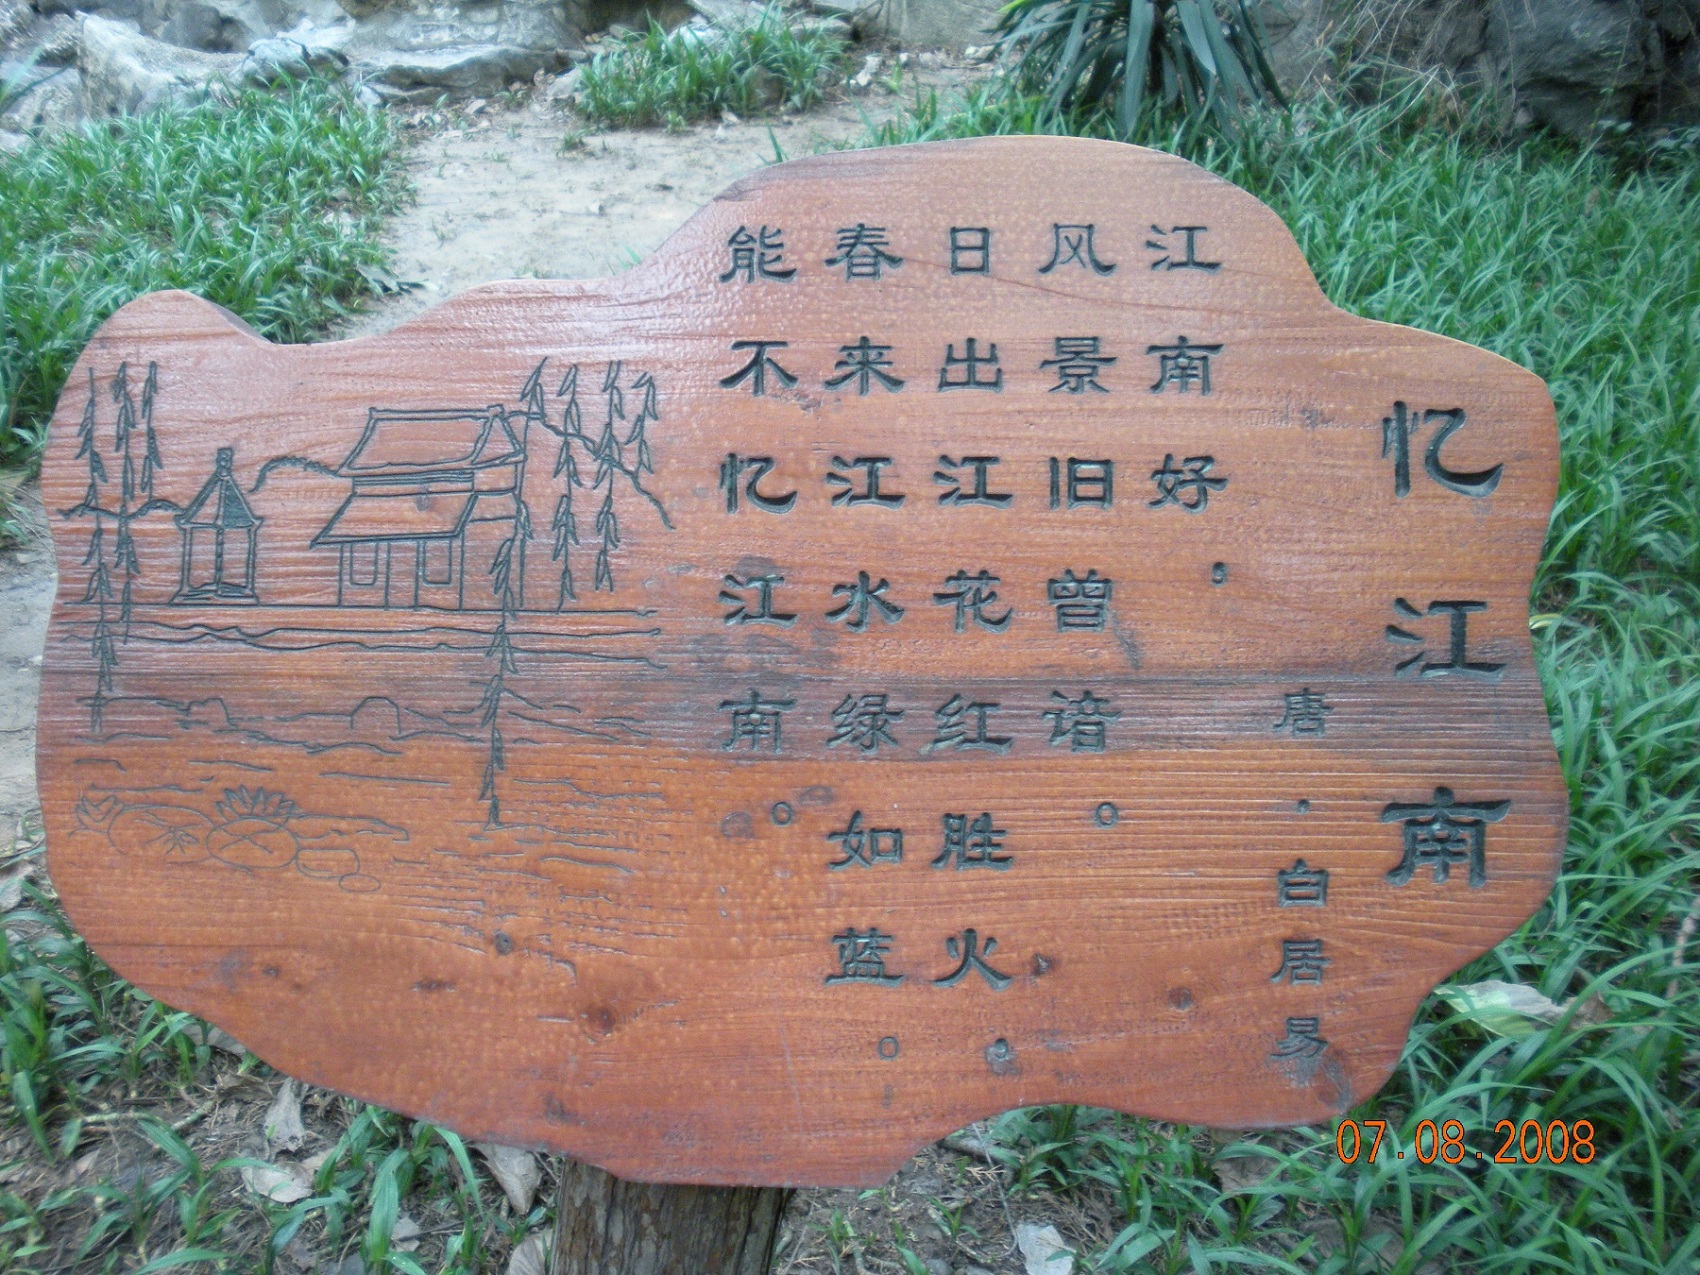 忆江南
唐·白居易
江南好，
风景旧曾谙。
日出江花红胜火，
春来江水绿如蓝。
能不忆江南。
07.08.2008